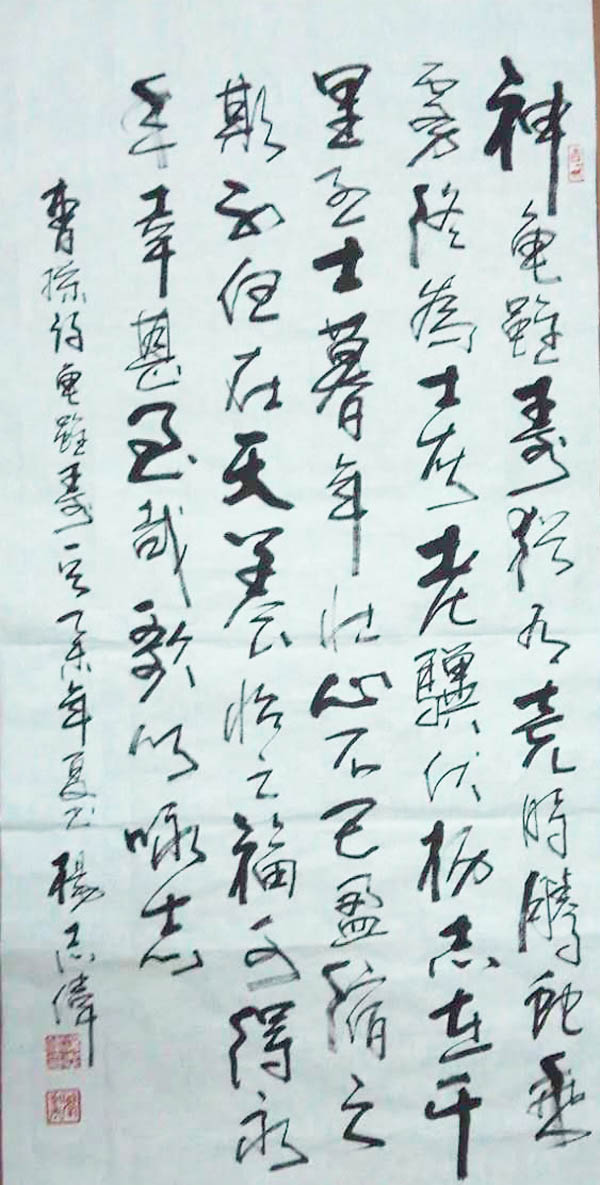 神亀雖寿猶有竟時騰蛇乘
雾終為土灰老驥伏枥志在千
里烈士暮年壮心不已盈縮之
期不但在天養怡之福可得永
年幸甚至哉歌以咏志
曹操诗亀雖寿一首乙未年夏楊志偉